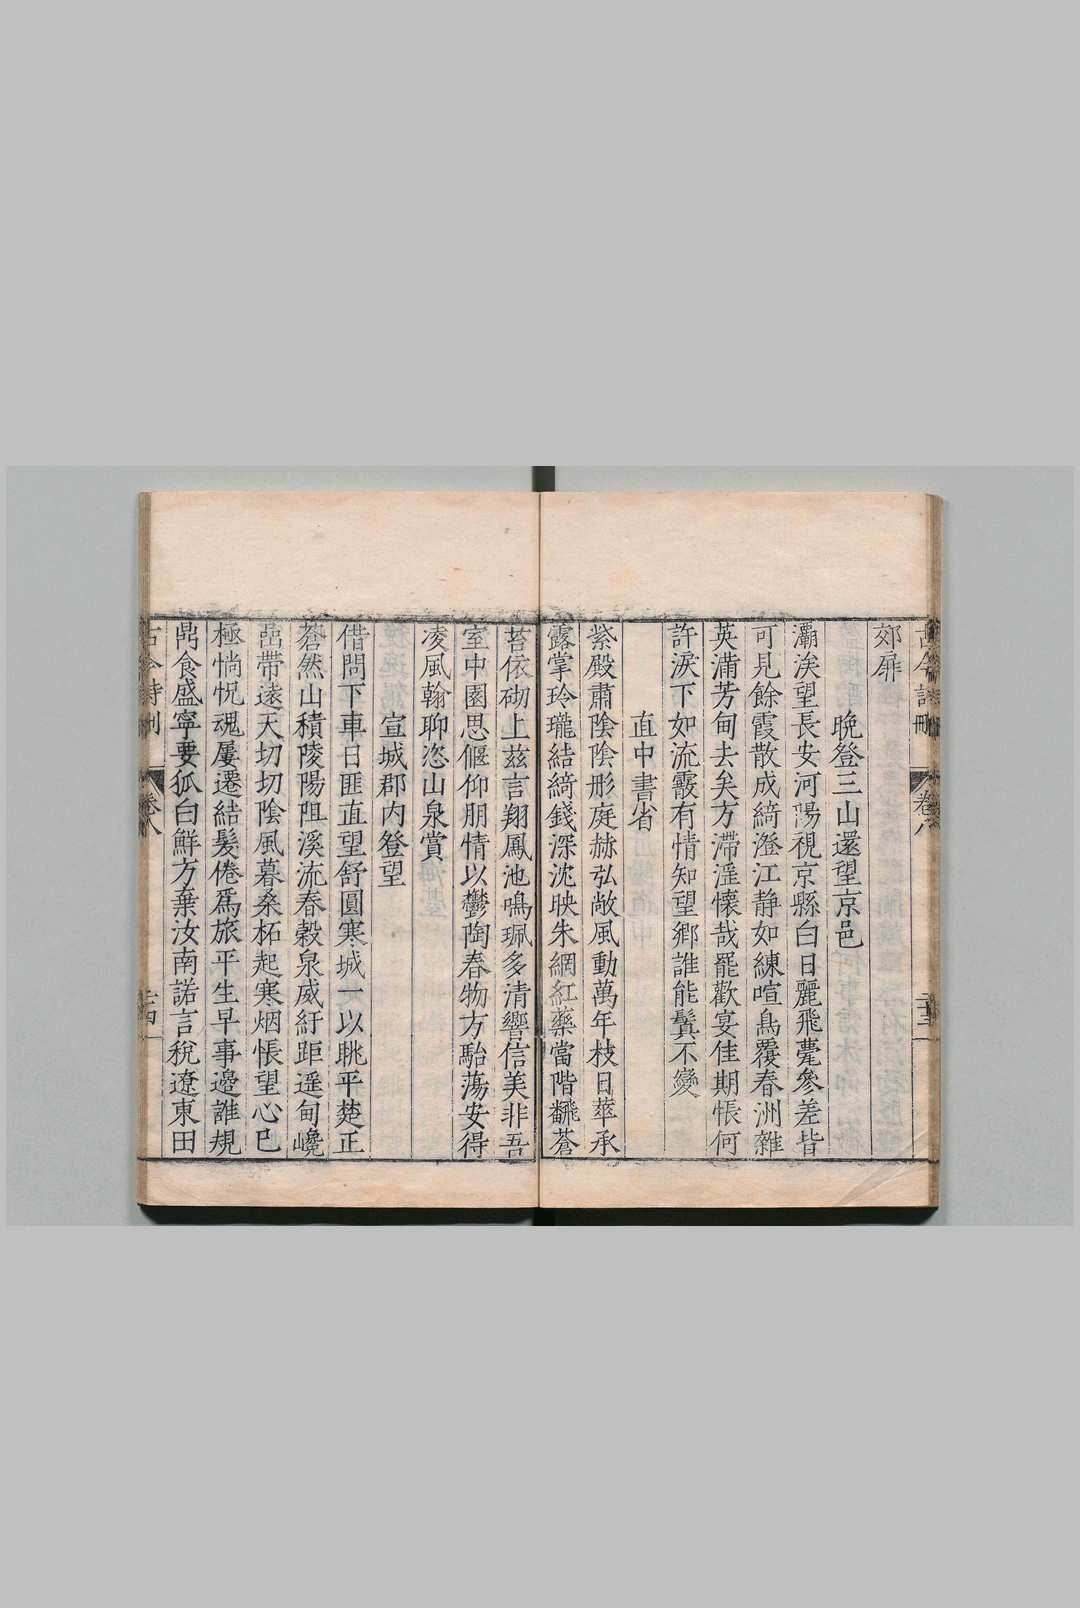 郊扉
晚登三山還望京邑
灞涘望長安河陽視京縣白日麗飛甍參差皆
可見餘霞散成綺澄江静如練喧鳥覆春洲雜
英滿芳甸去矣方滯滛懷哉罷歡宴佳期悵何
許淚下如流霰有情知望鄉誰能鬒不變
直中書省
紫殿肅陰陰彤庭赫弘敞風動萬年枝日華承
露掌玲瓏結綺錢深沈映朱網紅藥當階飜蒼
苔依砌上兹言翔鳳池鳴珮多清響信美非吾
室中園思偃仰朋情以鬱陶春物方駘蕩安得
凌風翰聊恣山泉賞
宣城郡内登望
借問下車日匪直望舒圓寒城一以眺平楚正
蒼然山積陵陽阻溪流春穀泉威紆距遥甸巉
嵒帶遠天切切陰風暮桑柘起寒烟悵望心已
極惝怳魂屢遷結髮倦爲旅平生早事邊誰規
鼎食盛寧要狐白鮮方棄汝南諾言稅遼東田
古今詩刪
卷八